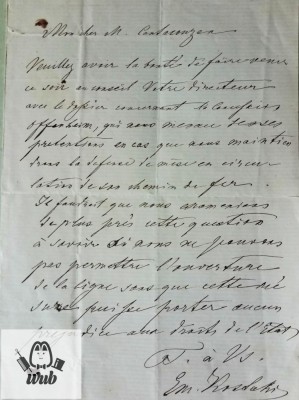 Mon cher M. Cantacuzène
Veuillez avoir la bonté de faire venir
ce soir en conseil Votre directeur
avec le dossier concernant
Offenheim, qui nous menace de ses
prétentions en cas que nous maintien
dans la defense de mise en circu
lation de son chemin de fer.
Il faudrait que nous
de plus près cette question
à savoir si nous ne pouvons
pas permettre l'ouverture
de la ligne sans que cette
puisse porter aucun
prejudice aux droits de l'Etat
T. à Vs.
Em.
wub